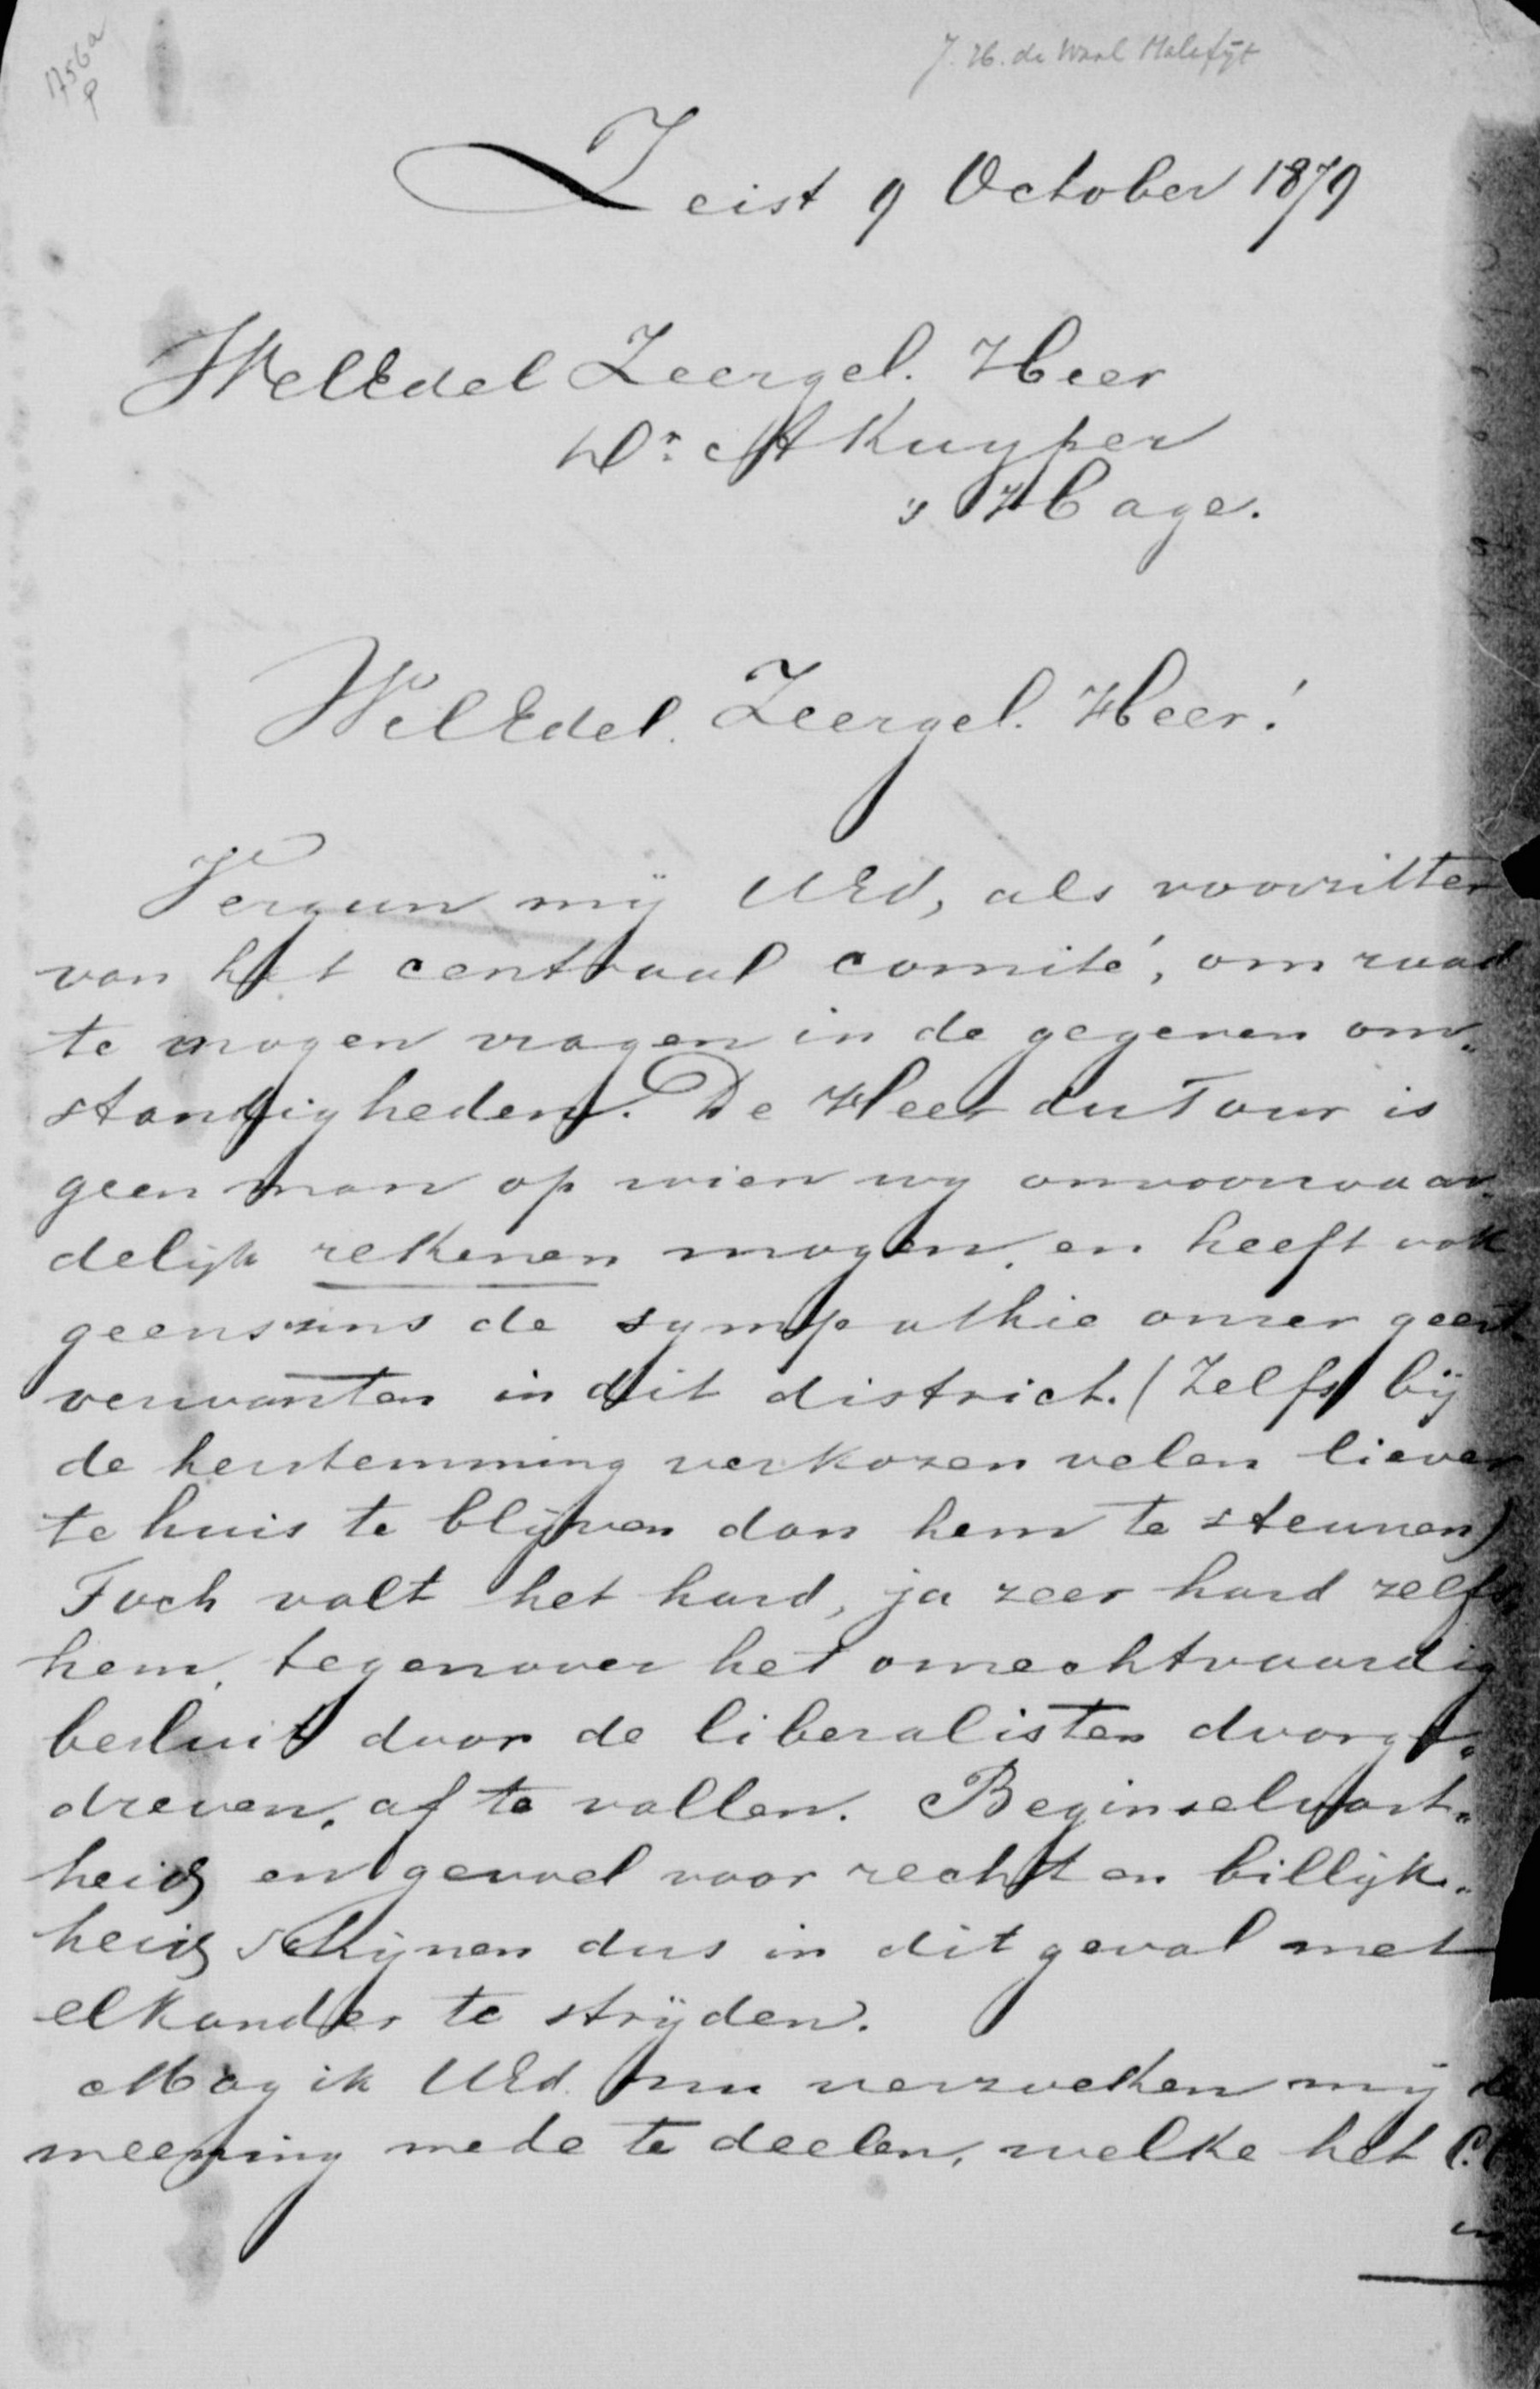 1756a
P
J. H. de Waal Malefijt
Zeist 9 October 1879
WelEdel Zeergel. Heer
Dr. A Kuyper
's Hage.
WelEdel. Zeergel. Heer!
Vergun mij UEd, als voorzitter
van het centraal comité, om raad
te mogen vragen in de gegeven om„
standigheden. De Heer du Tour is
geen man op wien wy onvoorwaar„
delijk rekenen mogen, en heeft ook
geenszins de sympathie onzer geest„
verwanten in dit district. (Zelfs bij
de herstemming verkozen velen liever
te huis te blijven dan hem te steunen)
Toch valt het hard, ja zeer hard zelfs,
hem, tegenover het onrechtvaardig
besluit door de liberalisten doorge„
dreven, af te vallen. Beginselvast„
heid en gevoel voor recht en billijk„
heid schijnen dus in dit geval met
elkander te strijden.
Mag ik UEd. nu verzoeken mij de
meening mede te deelen, welke het C.